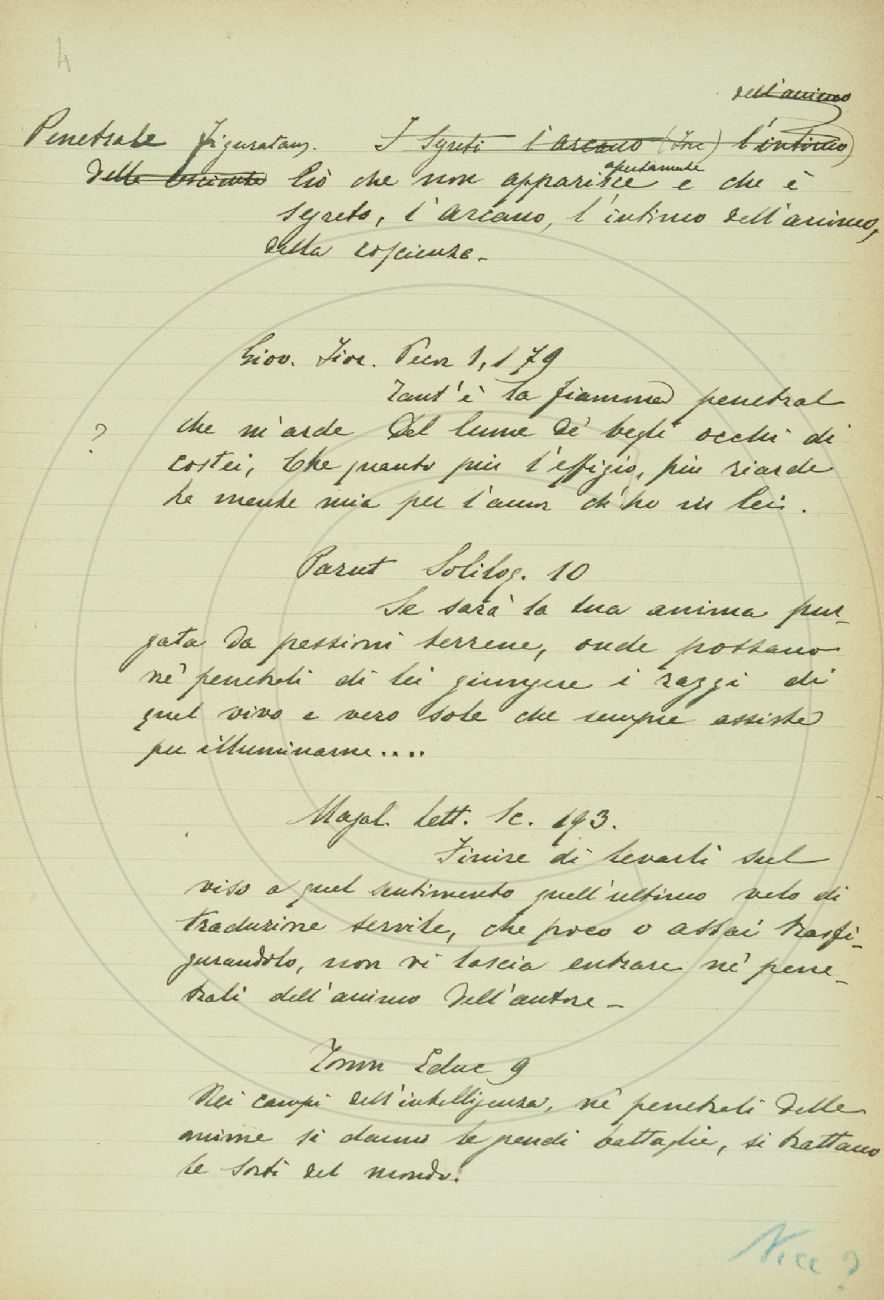 4
dell'animo
Penetrale figuratam. I segreti l'arcano l'intimo
della coscienza Ciò che non apparisce apertamente e che è
segreto, l'arcano, l'intimo dell'animo,
della coscienza.
Giov. Fior. Pecor 1, 179
Tant'è la fiamma penetral
? che m'arde Del lume de' begli occhi di
costei, Che quanto più l'effigio, più riarde
la mente mia per l'amor ch'ho in lei.
Parut Soliloq. 10
Se sarà la tua anima pur-
gata da passioni terrene, onde possano
ne' penetrali di lei giungere i raggi di
quel vivo e vero sole che sempre assiste
per illuminarne....
Magal. Lett. Sc. 193.
Finire di levarli sul
viso a quel sentimento quell'ultimo velo di
traduzione servile, che poco o assai trasfi-
gurandolo, non vi lascia entrare ne' pene-
trali dell'animo dell'autore -
Tomm Educ 9
Nei campi dell'intelligenza, ne' penetrali delle
anime si danno le grandi battaglie, si trattano
le sorti del mondo.